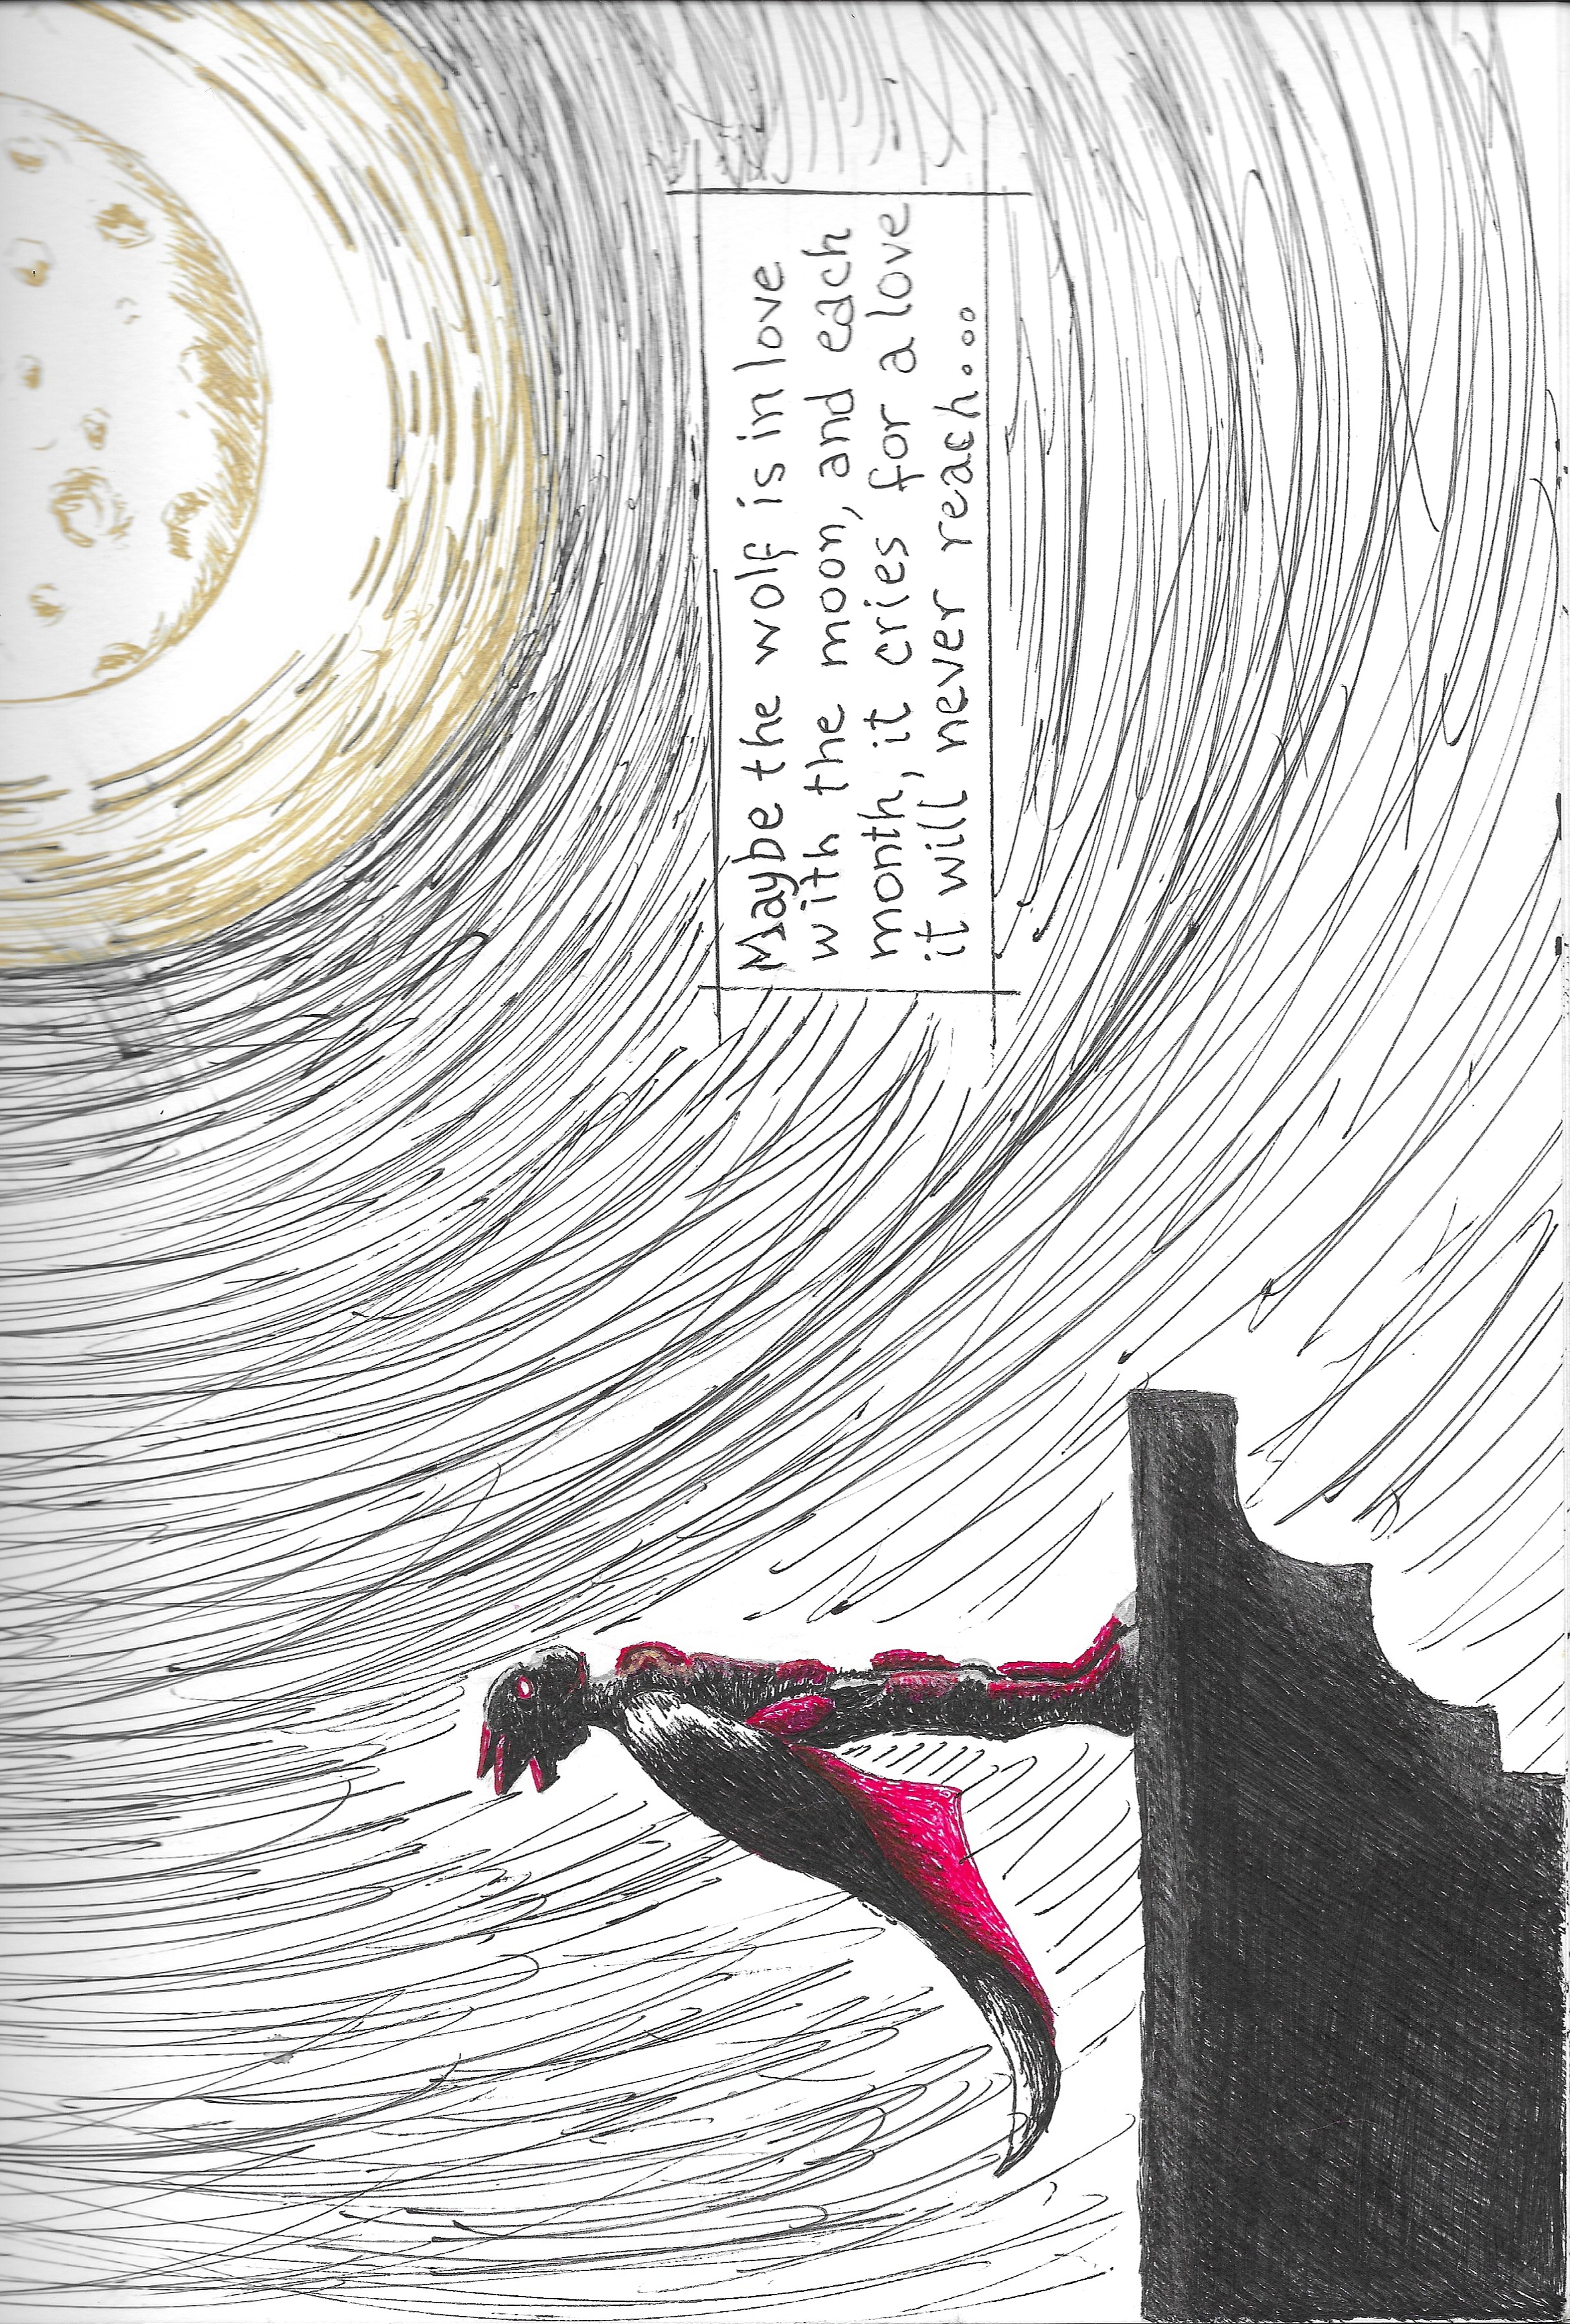 Maybe the wolf is in love
with the moon, and each
month, it cries for a love
it will never reach...